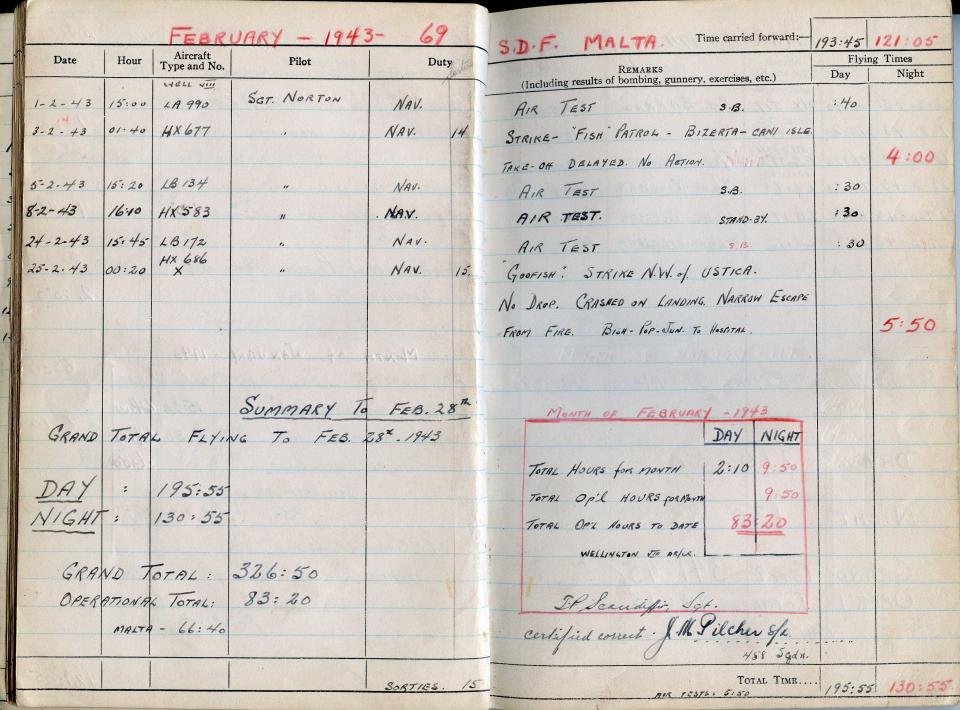 FEBRUARY - 1943 - 69
Date Hour Aircraft Type and No. Pilot Duty
WELL VIII
1-2-43 15:00 LA 990 SGT. NORTON NAV.
3-2-43 01:40 HX 677 " NAV. 14
5-2-43 15:20 LB 134 " NAV.
8-2-43 16:10 HX 583 " NAV.
24-2-43 15:45 LB 172 " NAV.
25-2-43 00:20 HX 686 " NAV. 15
X
SUMMARY TO FEB. 28TH
GRAND TOTAL FLYING TO FEB. 28TH - 1943
DAY : 195:55
NIGHT : 130:55
GRAND TOTAL: 326:50
OPERATIONAL TOTAL: 83:20
MALTA - 66:40
SORTIES. 15
S.D.F. MALTA. Time carried forward:— 193:45 121:05
REMARKS
(Including results of bombing, gunnery, exercises, etc.)
Flying Times
Day Night
AIR TEST S.B. :40
STRIKE - "FISH" PATROL - BIZERTA - CANI ISLE.
TAKE-OFF DELAYED. NO ACTION. 4:00
AIR TEST S.B. :30
AIR TEST. STAND-BY. :30
AIR TEST S.B. :30
"GOOFISH". STRIKE N.W. of USTICA.
NO DROP. CRASHED ON LANDING. NARROW ESCAPE
FROM FIRE. TO HOSPITAL. 5:50
MONTH OF FEBRUARY - 1943
DAY NIGHT
TOTAL HOURS for MONTH 2:10 9:50
TOTAL OP'L HOURS for MONTH 9:50
TOTAL OP'L HOURS TO DATE 83:20
WELLINGTON
Sgt.
certified correct. J. M. Pilcher S/L
458 Sqdn.
TOTAL TIME.... 195:55 130:55
AIR TESTS: 5:50